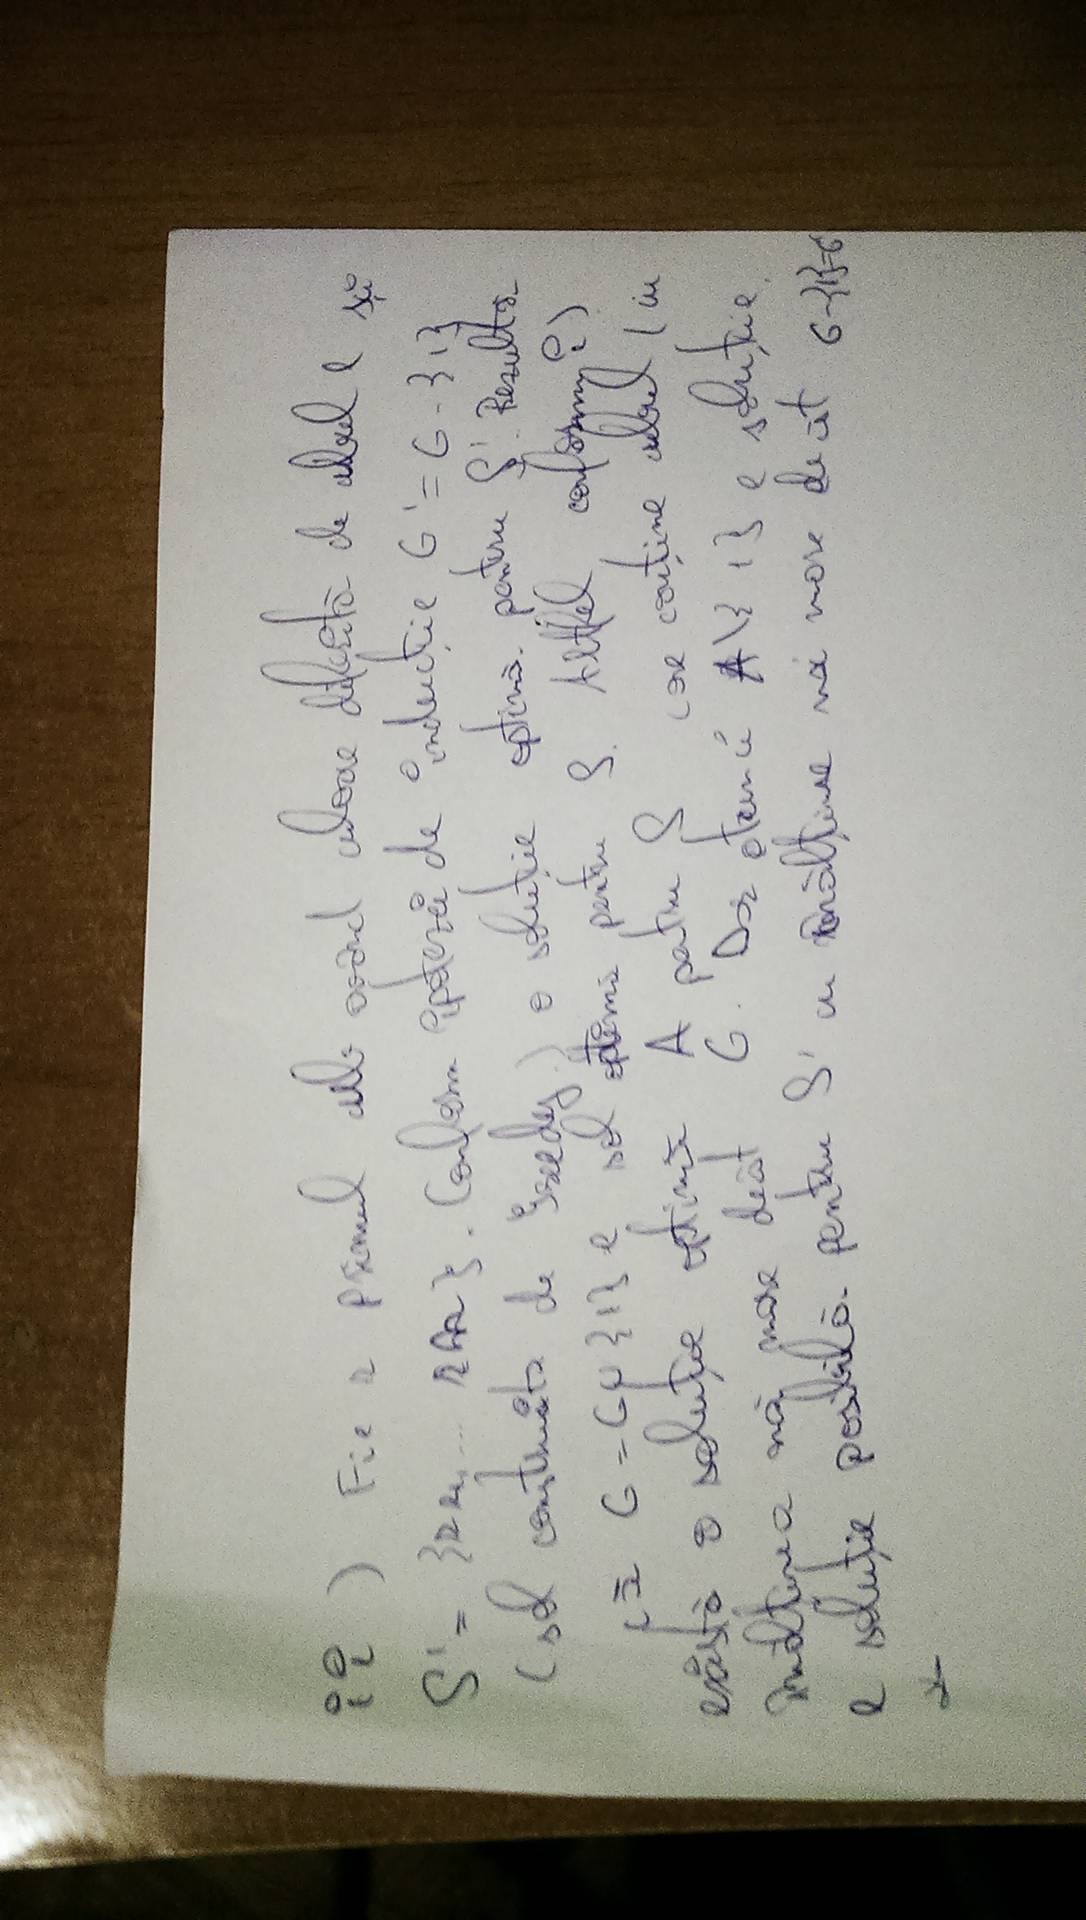 ii) Fie r primul cub având culoare diferită de cubul 1 și
S' = {r, r+1, ... n}. Conform ipotezei de inducție G' = G - {1}
(sol construită de Greedy) o soluție optimă pentru S'. Rezultă
că G = G'∪{1} e sol optimă pentru S. Altfel conform i)
există o soluție optimă A pentru S care conține cubul 1 cu
înălțimea mai mare decât G. Dar atunci A\{1} e soluție
e soluție posibilă pentru S' cu înălțime mai mare decât G-{1}=G